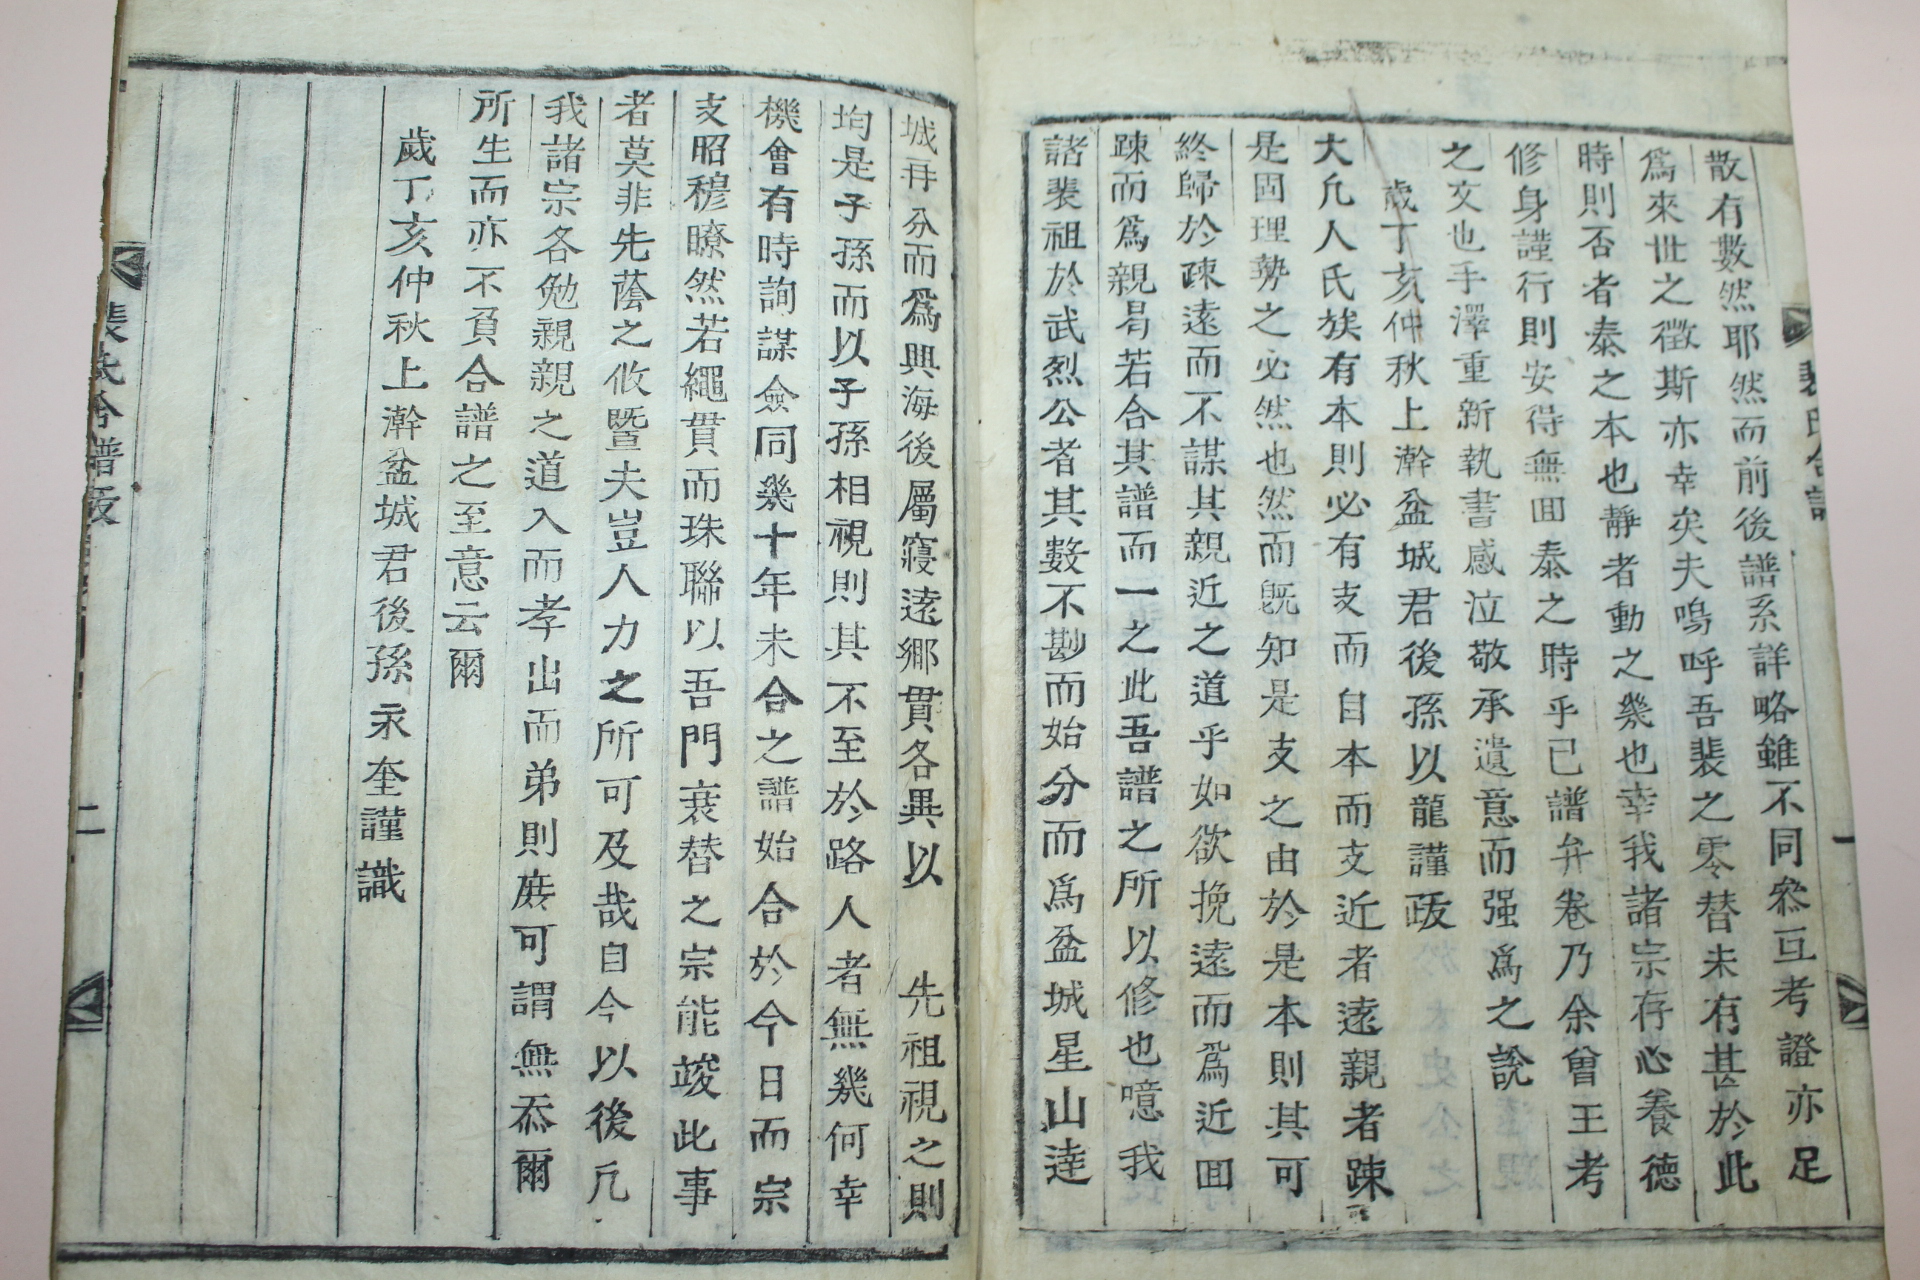 裴氏合譜
一
散有數然耶然而前後譜系詳略雖不同叅互考證亦足
爲來世之徵斯亦幸矣夫嗚呼吾裴之零替未有甚於此
時則否者泰之本也靜者動之幾也幸我諸宗存心養德
修身謹行則安得無回泰之時乎已譜弁卷乃余曾王考
之文也手澤重新執書感泣敬承遺意而强爲之說
歲丁亥仲秋上澣盆城君後孫以龍謹跋
大凡人氏族有本則必有支而自本而支近者遠親者踈
是固理勢之必然也然而旣知是支之由於是本則其可
終歸於疎遠而不謀其親近之道乎如欲挽遠而爲近回
踈而爲親曷若合其譜而一之此吾譜之所以修也噫我
諸裴祖於武烈公者其數不尠而始分而爲盆城星山達
城再分而爲興海後屬寢遠鄕貫各異以　先祖視之則
均是子孫而以子孫相視則其不至於路人者無幾何幸
機會有時詢謀僉同幾十年未合之譜始合於今日而宗
支昭穆瞭然若繩貫而珠聯以吾門衰替之宗能竣此事
者莫非先蔭之攸曁夫豈人力之所可及哉自今以後凡
我諸宗各勉親親之道入而孝出而弟則庶可謂無忝爾
所生而亦不負合譜之至意云爾
歲丁亥仲秋上澣盆城君後孫永奎謹識
裴氏合譜跋
二